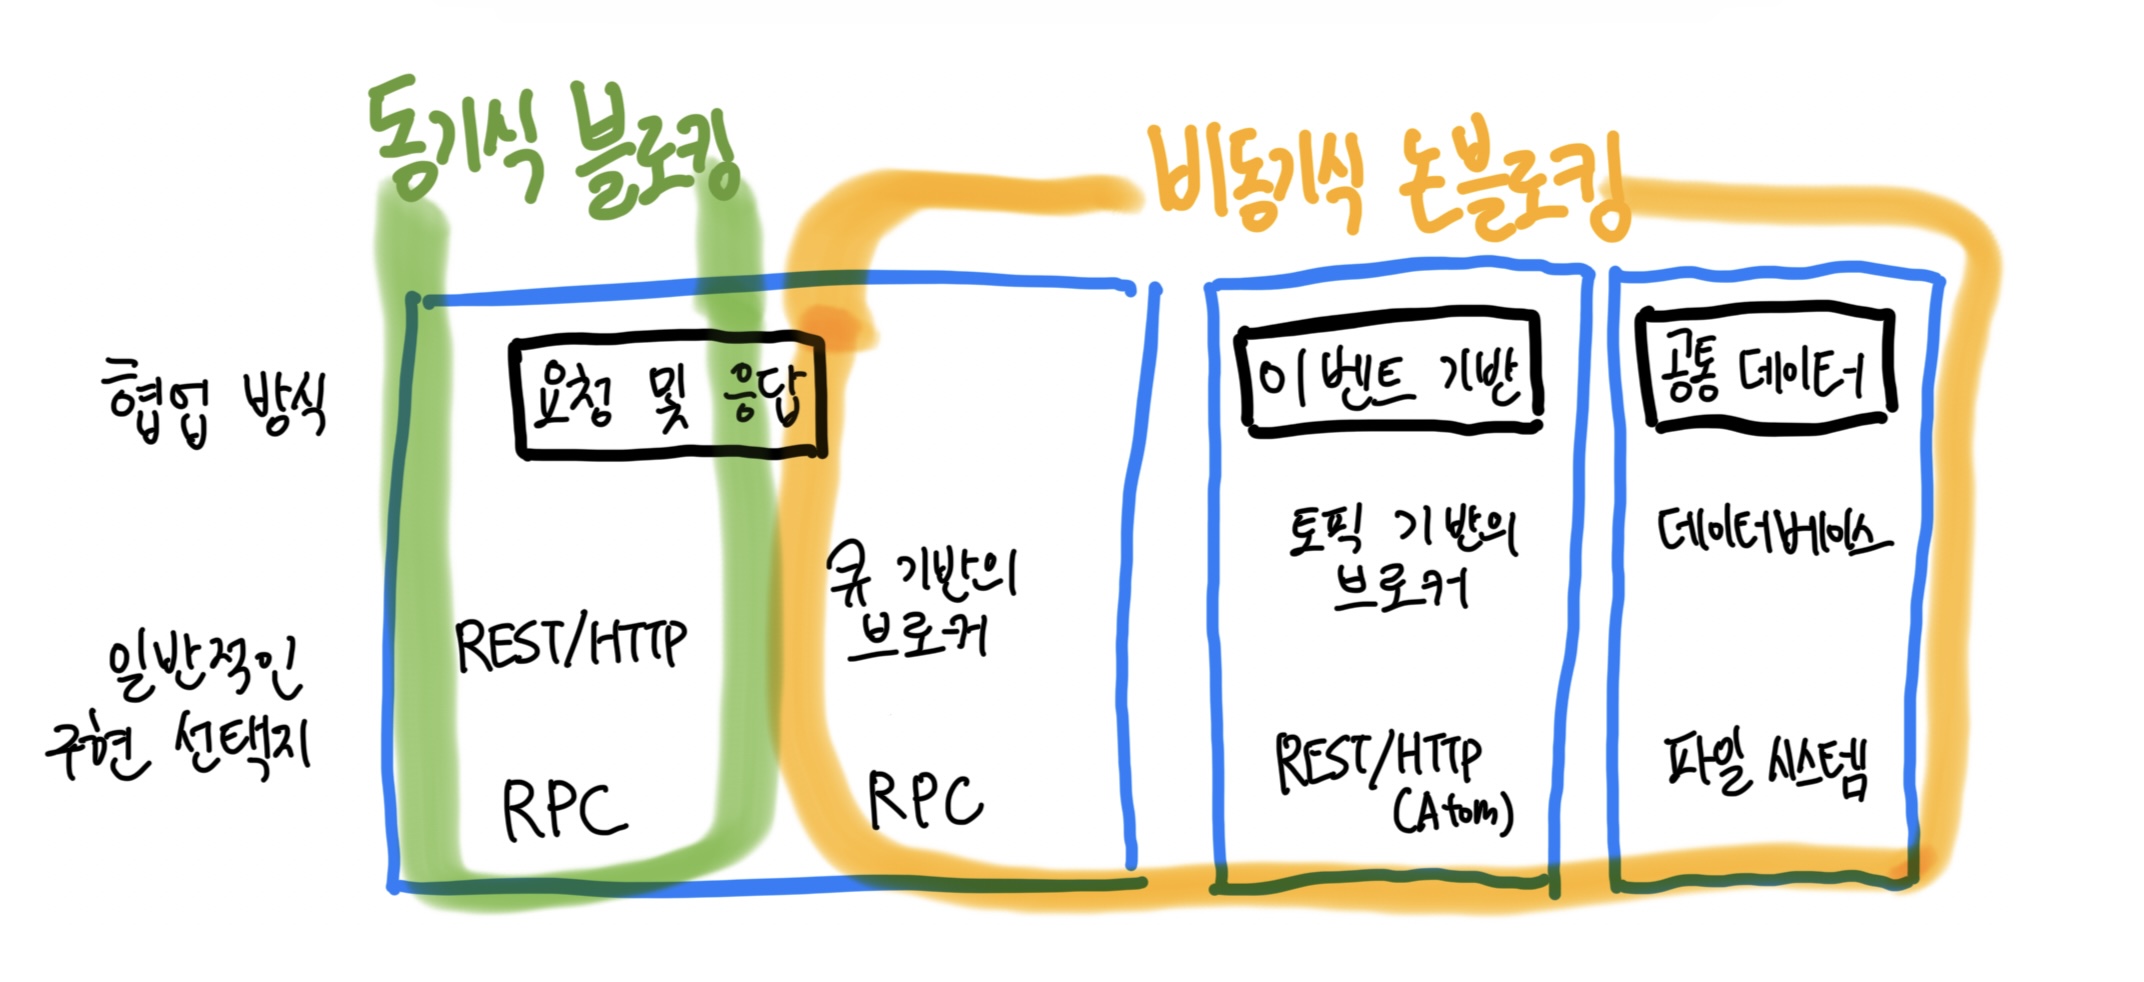 동기식 블로킹
비동기식 논블로킹
협업 방식
요청 및 응답
이벤트 기반
공통 데이터
일반적인
구현 선택지
REST/HTTP
RPC
큐 기반의
브로커
RPC
토픽 기반의
브로커
REST/HTTP
(Atom)
데이터베이스
파일 시스템